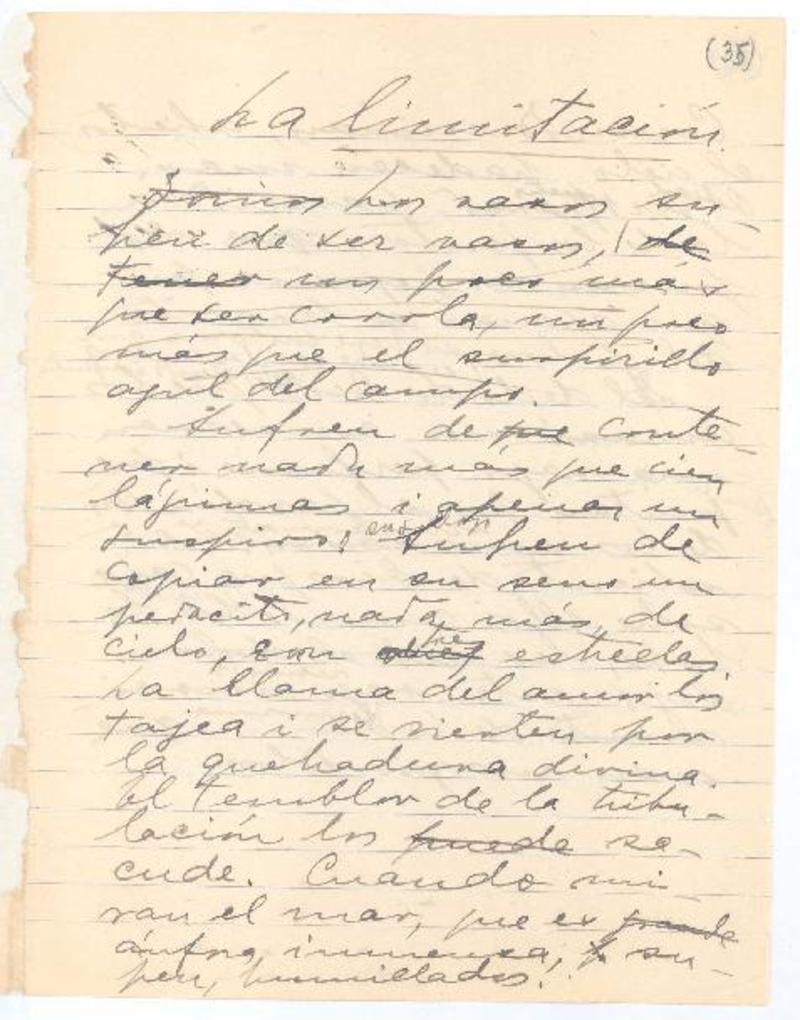 (35)
La limitación
Los vasos su-
fren de ser vasos, de
tener un poco más
que ser corola, un poco
más que el suspirillo
azul del campo.
Sufren de que conte-
ner nada más que cien
lágrimas i apenas un
suspiro. Sufren de
copiar en su seno un
pedacito, nada más, de
cielo, con tres estrellas
La llama del amor los
tajea i se vierten por
la quebradura divina.
El temblor de la tribu-
lación los puede sa-
cude. Cuando mi-
ran el mar, que es grande
ánfora inmensa, su-
fren, humillados.